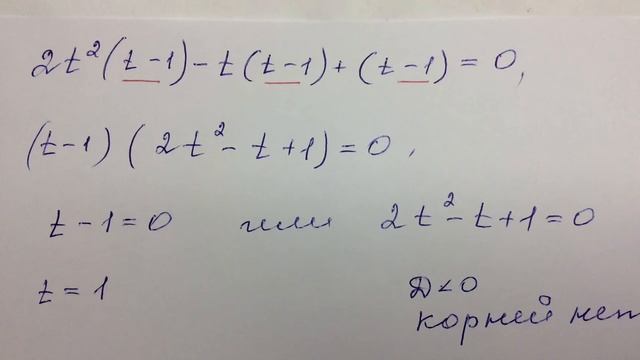 2t²(t-1)-t(t-1)+(t-1)=0,
(t-1)(2t²-t+1)=0,
t-1=0 или 2t²-t+1=0
t=1 D<0
корней нет